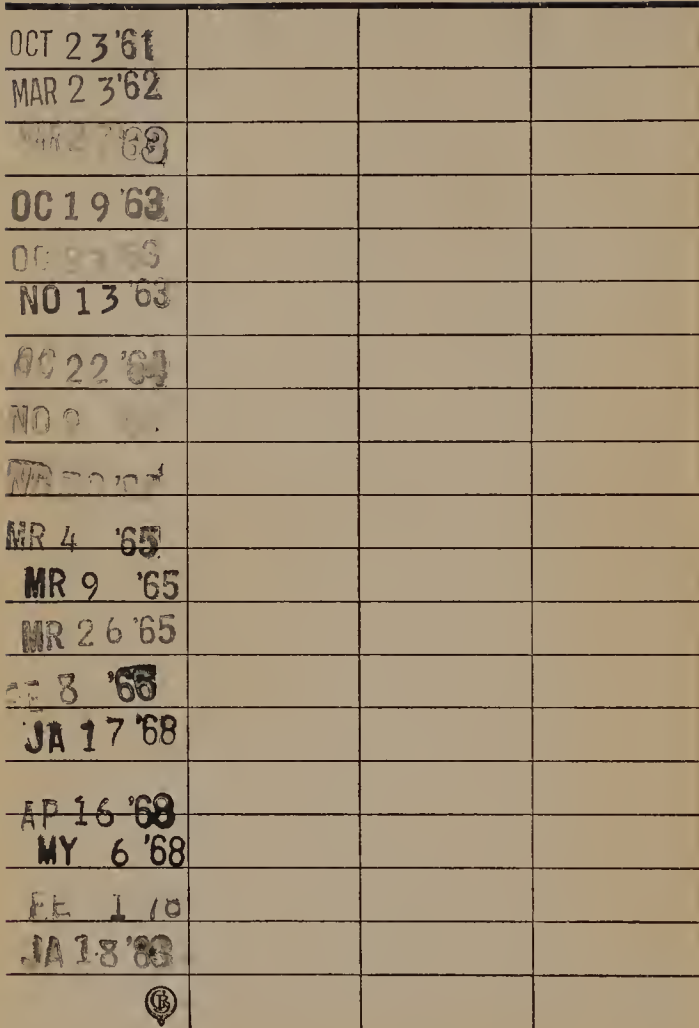 OCT 23 '61
MAR 23 '62
'63
OC 19 '63
OC
NO 13 '63
OC 22 '64
NO 9
MR 4 '65
MR 9 '65
MR 26 '65
8 '66
JA 17 '68
AP 16 '68
MY 6 '68
FE 1
JA 18